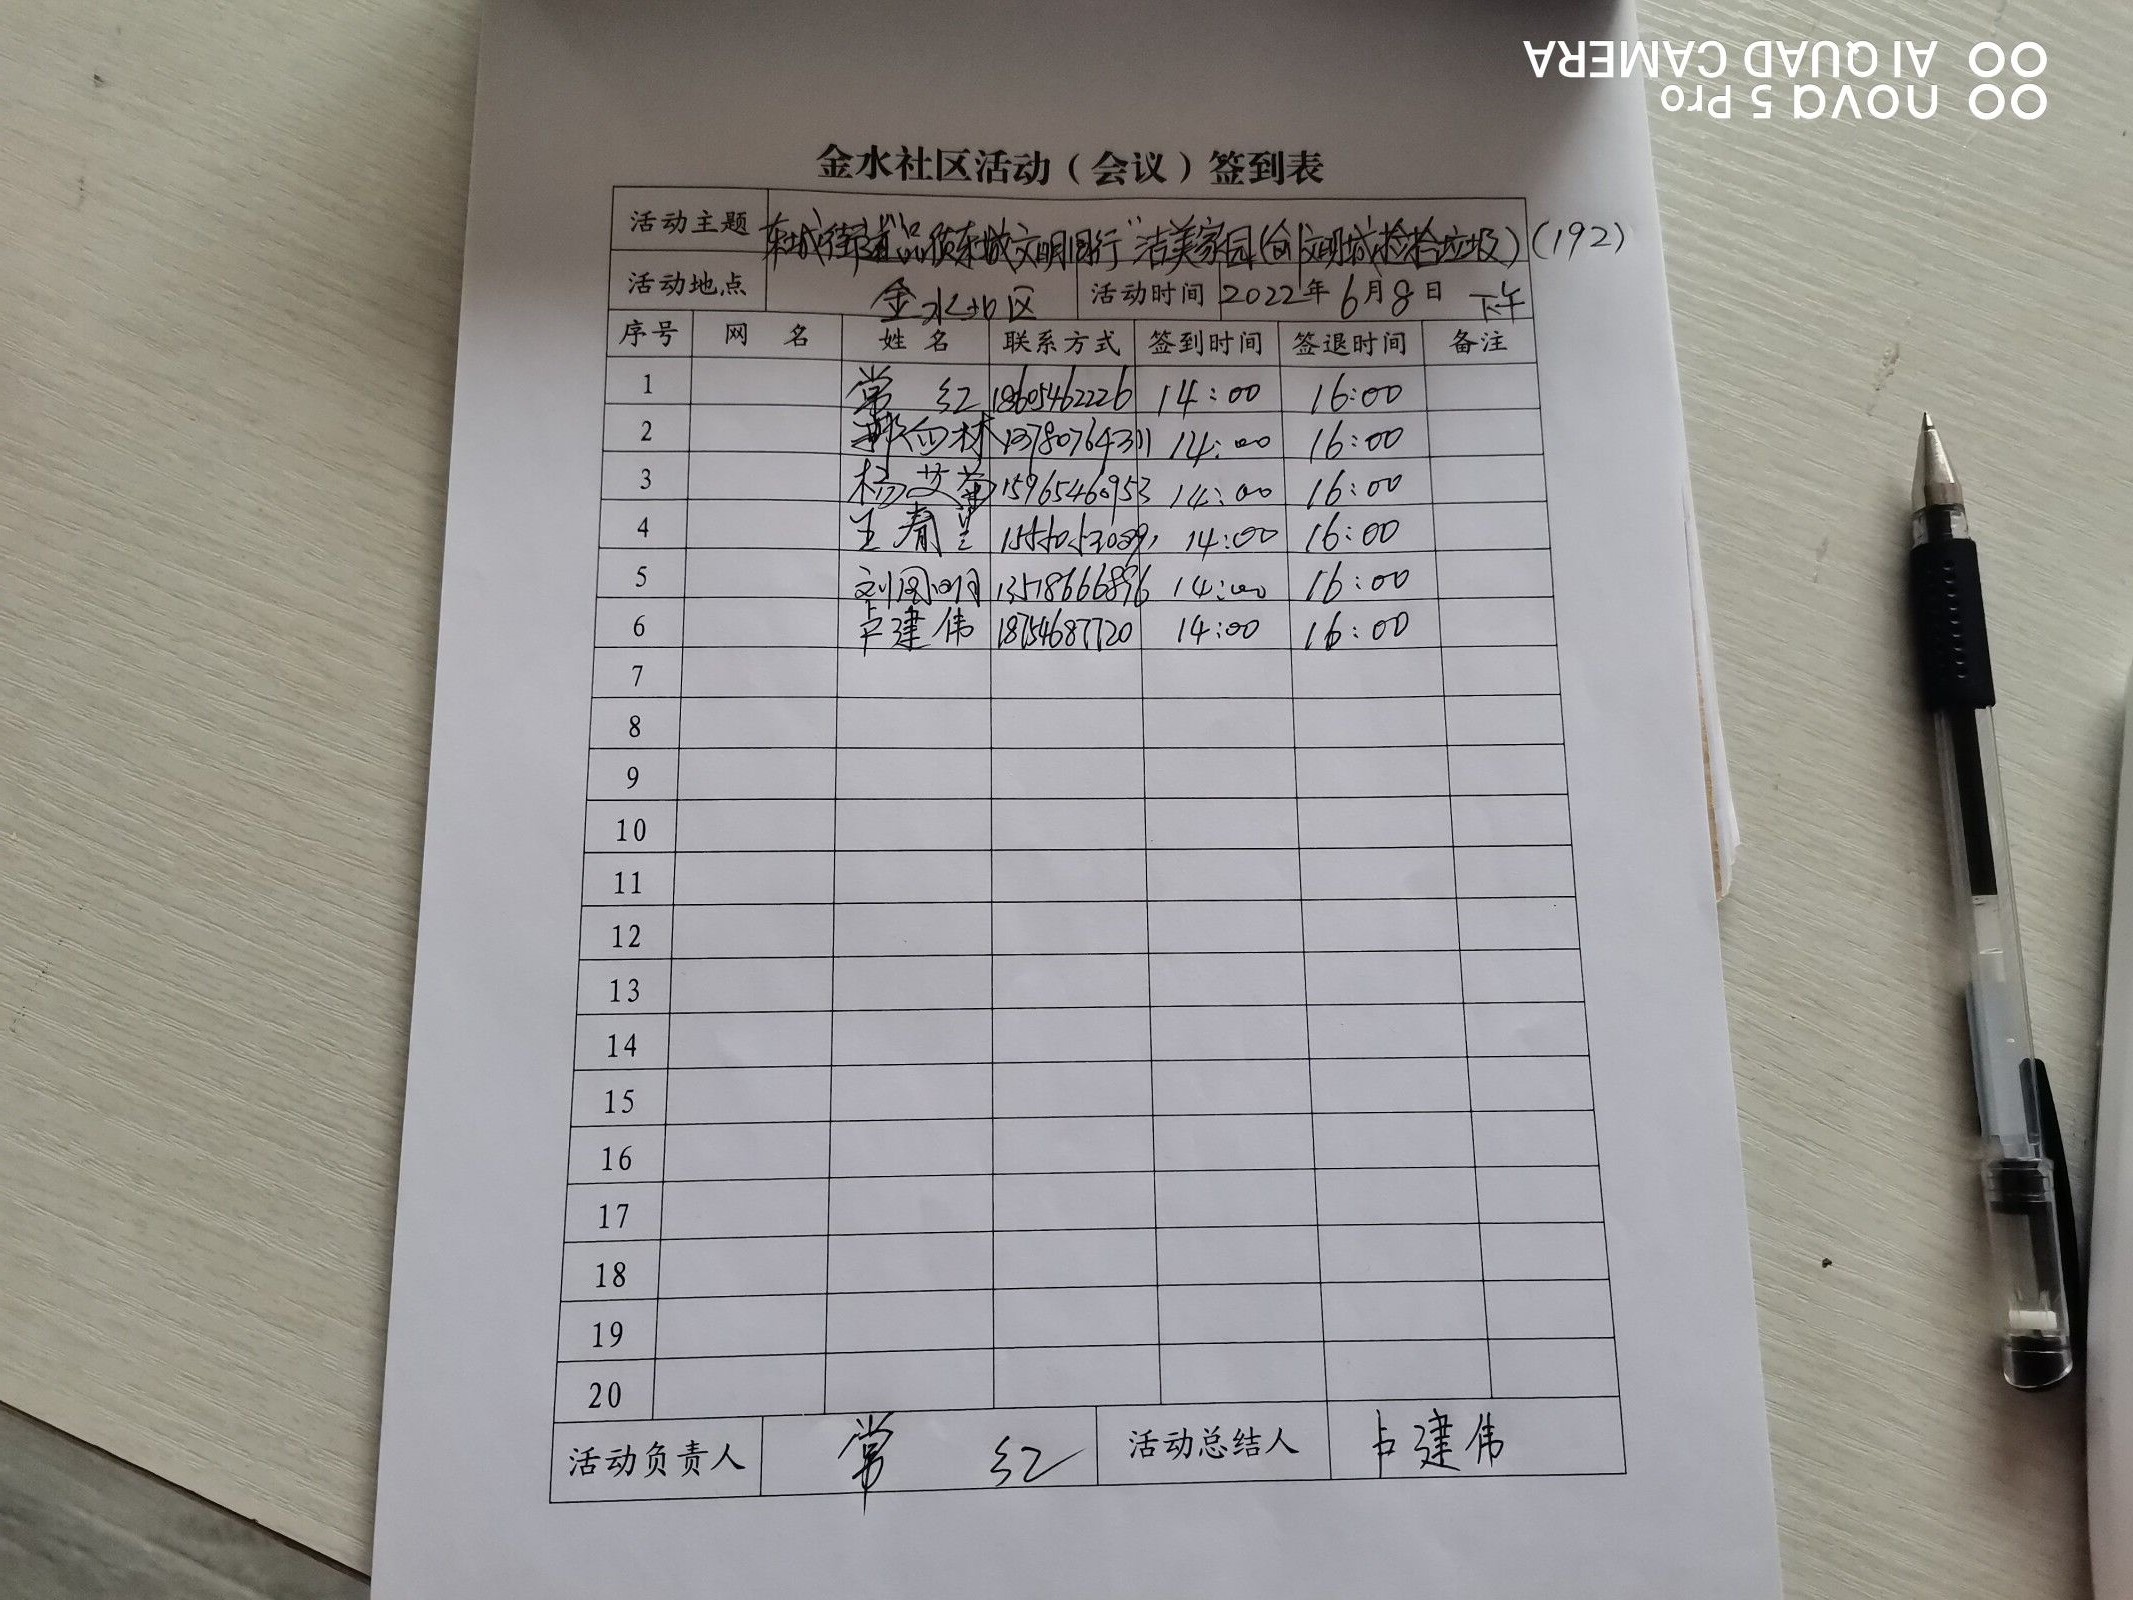 金水社区活动（会议）签到表
活动主题 东城街道"品质东城文明同行"洁美家园(创文明城捡拾垃圾)(192)
活动地点 金水社区 活动时间 2022年6月8日 下午
序号 网 名 姓 名 联系方式 签到时间 签退时间 备注
1 常 红 18605462226 14:00 16:00
2 林 13780764311 14:00 16:00
3 杨艾菊 15965460953 14:00 16:00
4 王春兰 14:00 16:00
5 刘国明 14:00 16:00
6 卢建伟 18754687720 14:00 16:00
7
8
9
10
11
12
13
14
15
16
17
18
19
20
活动负责人 常 红 活动总结人 卢建伟
nova 5 Pro
AI QUAD CAMERA